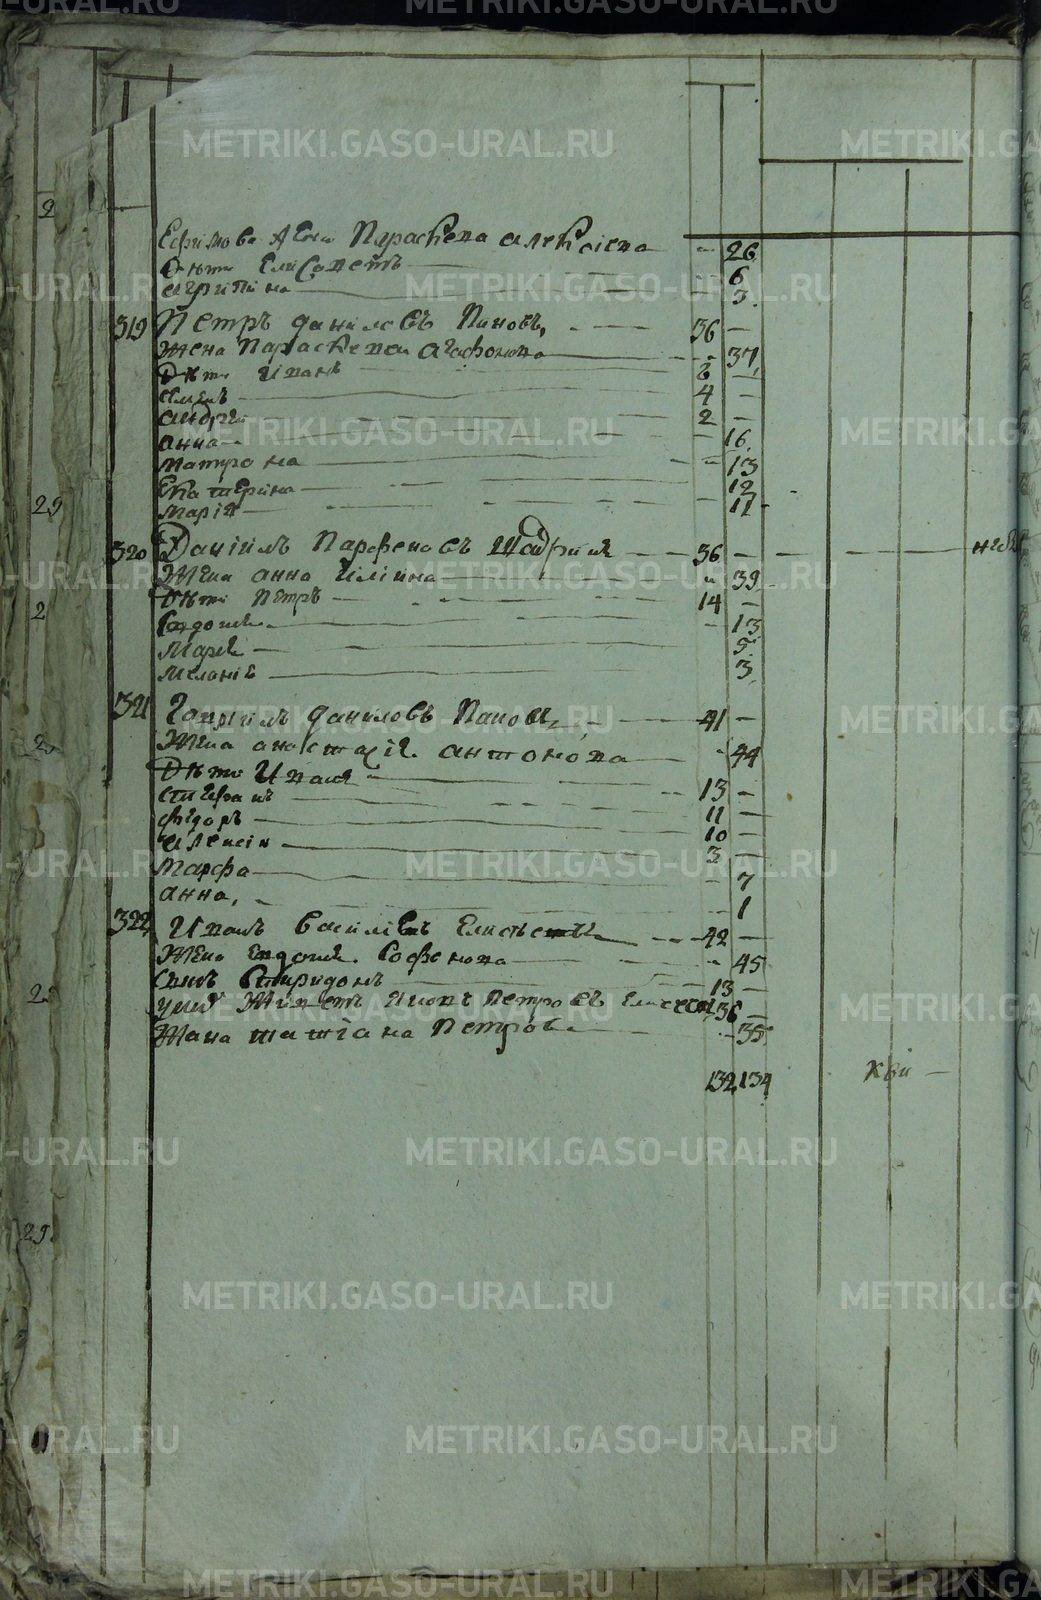 Ефимова жена Параскева Алексиева - 26
Дѣти Елисаветъ - 6
Агрипина - 3
319 Петръ Даниловъ Пановъ, 36 -
Жена Параскева Агафонова - 37
Дѣти Иванъ -
4 -
Андрей 2 -
Анна - 16
Матрона - 13
Екатерина - 12
Марія - 11
320 Даніилъ Парфеновъ Шадринъ 36 -
Жена Анна Иліина - 39
Дѣти Петръ 14 -
Евдокия - 13
Марія 5
Меланіѣ 3
321 Гавріилъ Даниловъ Пановъ 41 -
Жена Анастасія Антонова - 44
Дѣти Иванъ - 13 -
Стефанъ 11 -
Федоръ 10 -
Алексій 3 -
Марфа - 7
Анна, - 1
322 Иванъ Василіевъ Елисѣевъ 42 -
Жена Евдокия Софонова - 45
Сынъ Спиридонъ 13 -
у них живетъ Петровъ 36 -
Жена Татіана Петрова - 35
132 134
METRIKI.GASO-URAL.RU